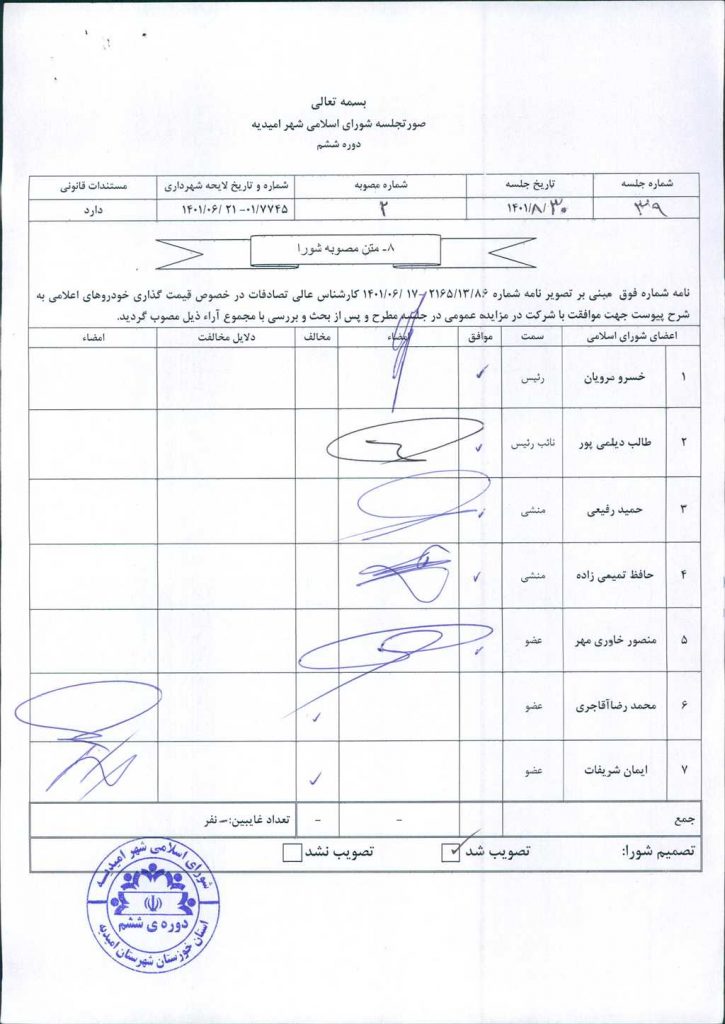 بسمه تعالی
صورتجلسه شورای اسلامی شهر امیدیه
دوره ششم
شماره جلسه تاریخ جلسه شماره مصوبه شماره و تاریخ لایحه شهرداری مستندات قانونی
۳۹ ۱۴۰۱/۸/۳۰ ۲ ۰۱/۷۷۴۵- ۱۴۰۱/۰۶/۲۱ دارد
۸- متن مصوبه شورا
نامه شماره فوق مبنی بر تصویر نامه شماره ۲۱۶۵/۱۳/۸۶- ۱۴۰۱/۰۶/۱۷ کارشناس عالی تصادفات در خصوص قیمت گذاری خودروهای اعلامی به
شرح پیوست جهت موافقت با شرکت در مزایده عمومی در جلسه مطرح و پس از بحث و بررسی با مجموع آراء ذیل مصوب گردید.
اعضای شورای اسلامی سمت موافق امضاء مخالف دلایل مخالفت امضاء
۱ خسرو مرویان رئیس ✓
۲ طالب دیلمی پور نائب رئیس ✓
۳ حمید رفیعی منشی ✓
۴ حافظ تمیمی زاده منشی ✓
۵ منصور خاوری مهر عضو ✓
۶ محمد رضاآقاجری عضو ✓
۷ ایمان شریفات عضو ✓
جمع - - تعداد غایبین:- نفر
تصمیم شورا: تصویب شد ✓ تصویب نشد
شورای اسلامی شهر امیدیه
دوره ی ششم
استان خوزستان شهرستان امیدیه